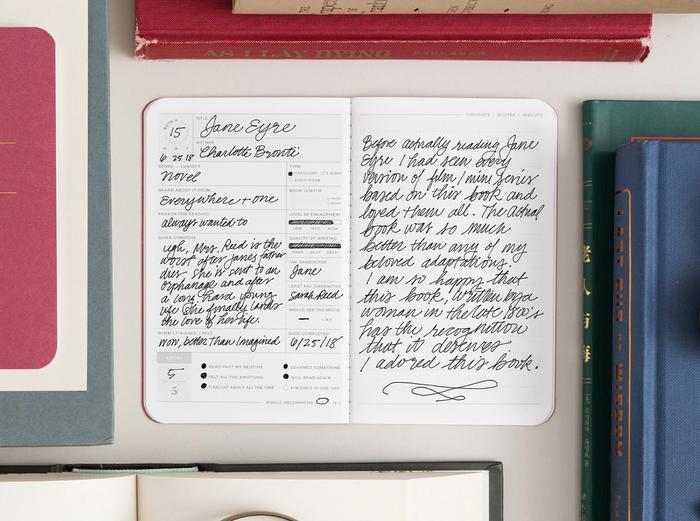 AS I LAY DYING FAULKNER
BOOK Nº
15
TITLE
Jane Eyre
AUTHOR
Charlotte Brontë
6 25 18
GENRE / SUBJECT
novel
TYPE
HARDCOPY E-BOOK
AUDIOBOOK
HEARD ABOUT IT FROM
Everywhere + one
BOOK LENGTH
REASON FOR READING
always wanted to
LEVEL OF ENGAGEMENT
LOW MED HIGH
QUICK SYNOPSIS
ugh, Mrs. Reed is the
worst after Janes father
dies she is sent to an
orphanage and after
a long hard young
life she finally lands
the love of her life.
QUALITY OF WRITING
POOR OKAY GREAT
FAV. CHARACTER
Jane
LEAST FAV. CHARACTER
Sarah Reed
WOULD SEE THE MOVIE
WHEN I FINISHED, I FELT
wow, better than Imagined
DATE COMPLETED
6/25/18
RATING
5
5
READ PAST MY BEDTIME
FELT ALL THE EMOTIONS
THOUGHT ABOUT ALL THE TIME
LEARNED SOMETHING
WILL READ AGAIN
FINISHED IN ONE DAY
WOULD RECOMMEND
THOUGHTS / QUOTES / INSIGHTS
Before actually reading Jane
Eyre I had seen every
version of film/mini series
based on this book and
loved them all. The actual
book was so much
better than any of my
beloved adaptations.
I am so happy that
this book, written by a
woman in the late 1800's
has the recognition
that it deserves.
I adored this book.
老人与海